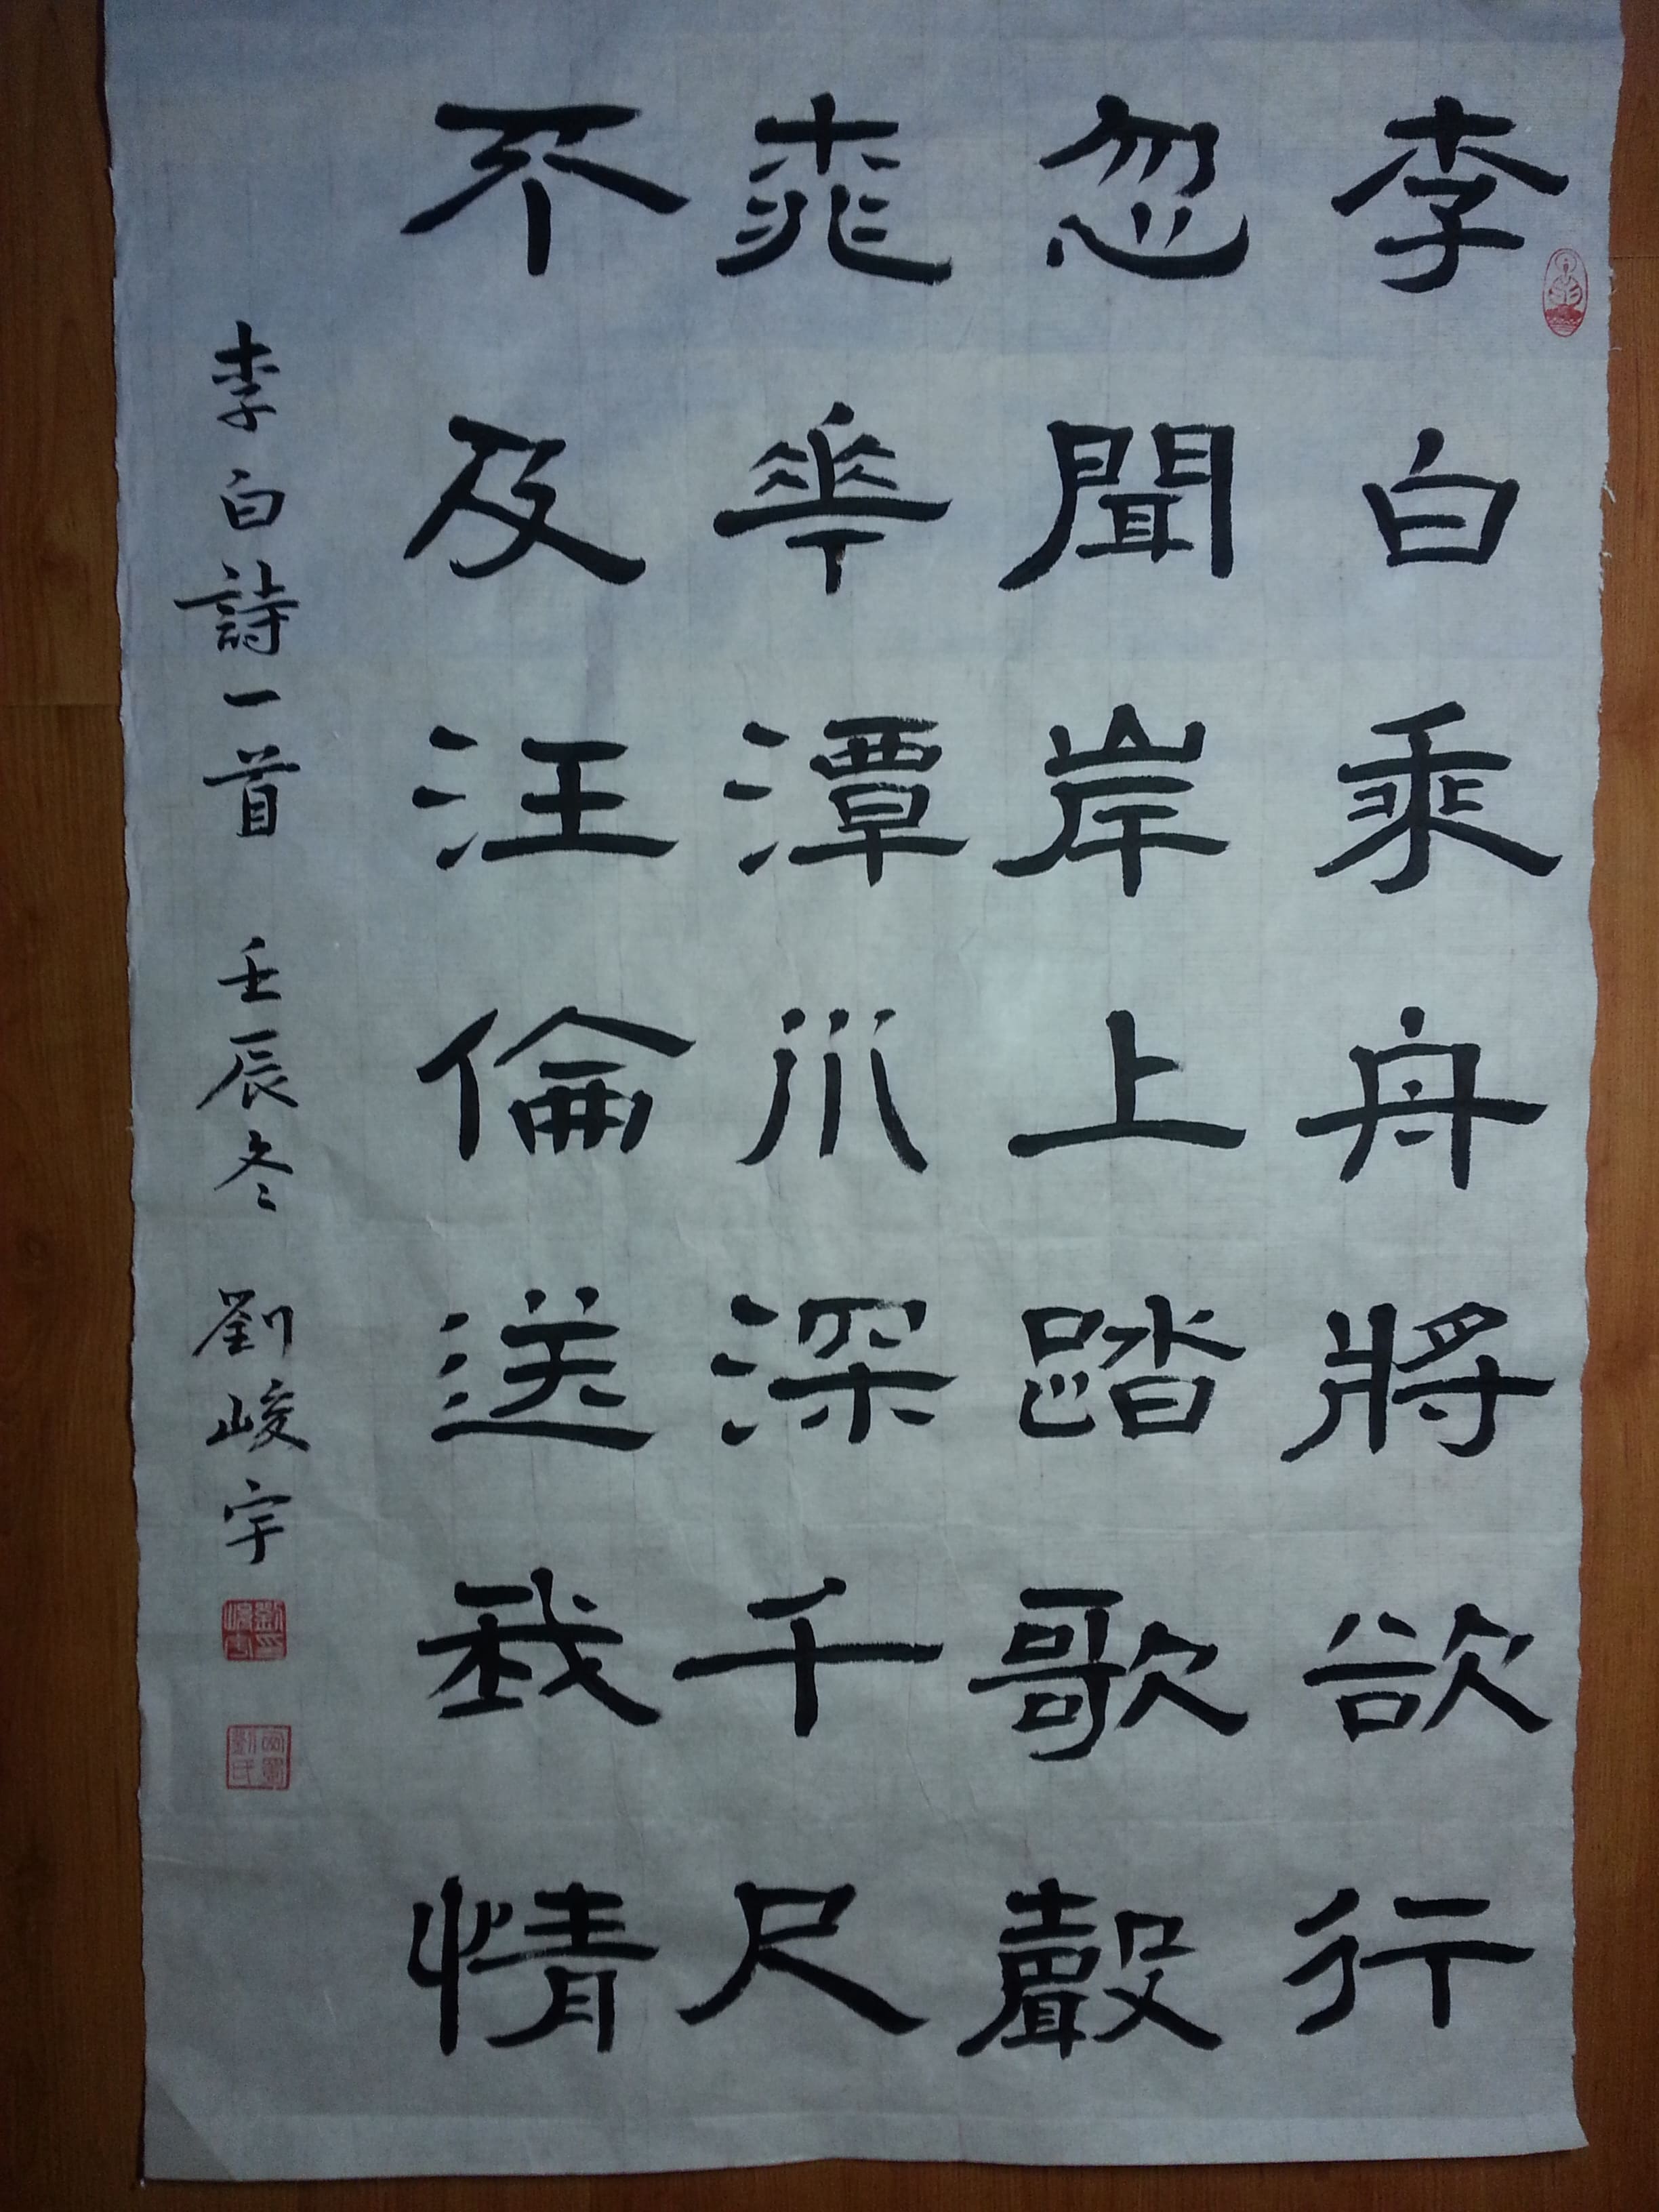 李白乘舟將欲行
忽聞岸上踏歌聲
桃花潭水深千尺
不及汪倫送我情
李白詩一首 壬辰冬 劉峻宇